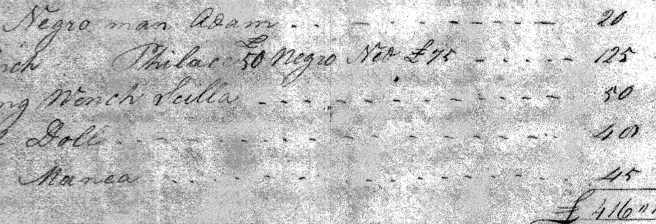 Negro man Adam - - - - - - - - 20
nch Philace £50 Negro Ned £75 - - - - - 125
ng Wench Scilla - - - - - - - - - 50
Doll - - - - - - - - - - - 40
Manca - - - - - - - - - - 45
£ 416 "